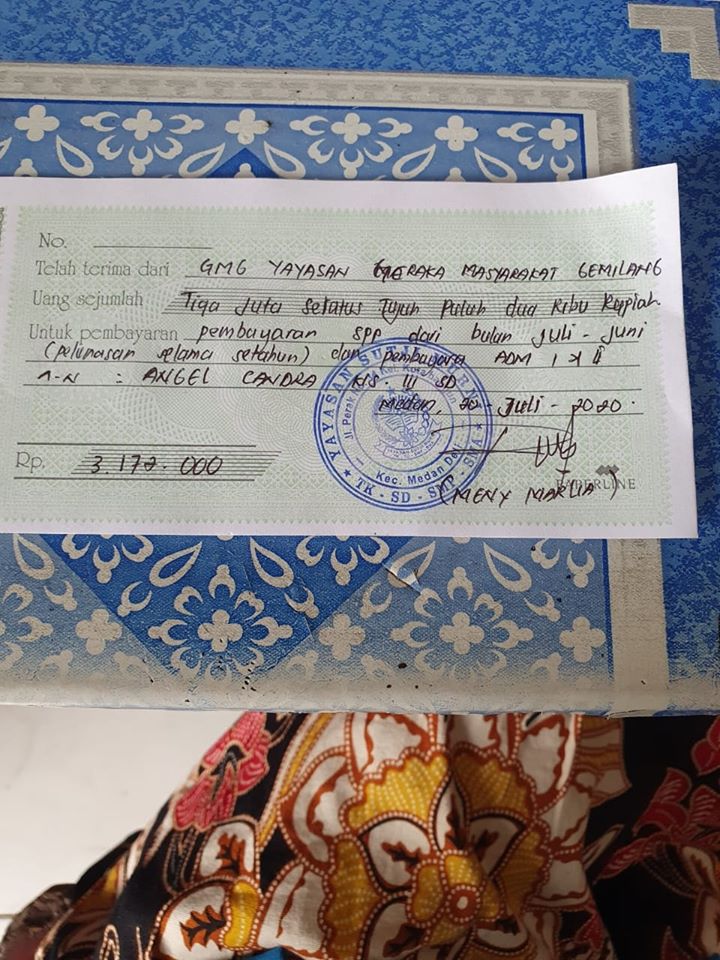 No.
Telah terima dari GMG YAYASAN GERAKA MASYARAKAT GEMILANG
Uang sejumlah Tiga Juta Seratus Tujuh Puluh dua Ribu Rupiah.
Untuk pembayaran pembayaran SPP dari bulan Juli - Juni
(pelunasan selama setahun) dan pembayara ADM I & II
A.N : ANGEL CANDRA KLS. III SD
Medan, 20 - Juli - 2020.
Rp. 3.172.000
(MENY MARLIA)
PAPERLINE
YAYASAN
Jl. Perak
Kec. Medan Deli
TK - SD - SMP - SMA